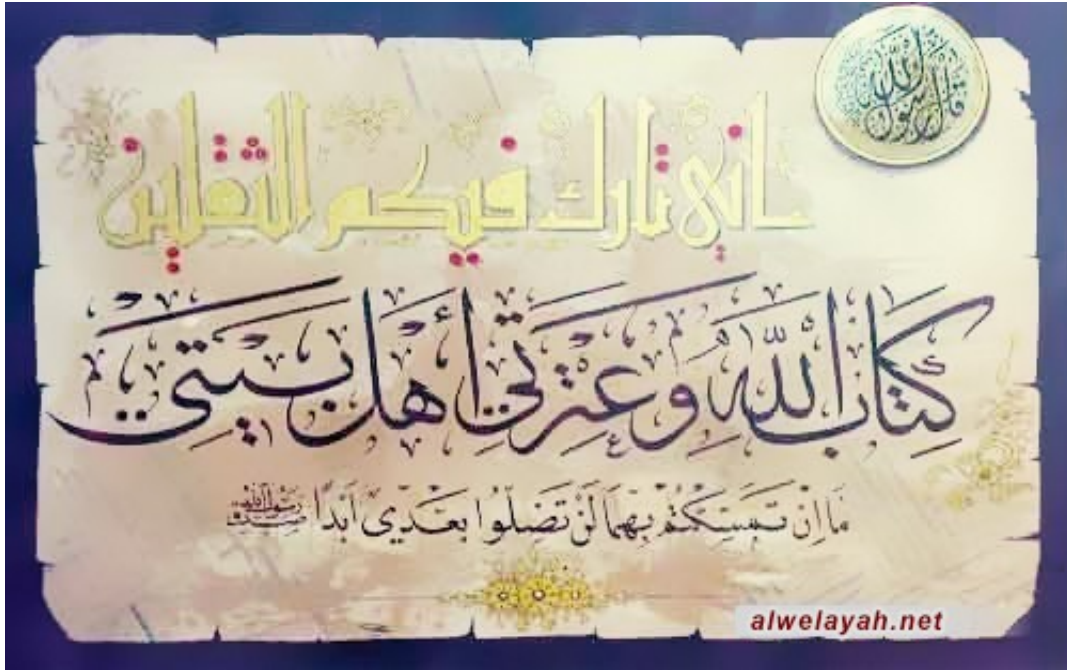 قال رسول الله
إني تارك فيكم الثقلين
كِتَابَ اللهِ وَعِتْرَتِي أَهْلَ بَيْتِي
مَا اِنْ تَمَسَّكْتُمْ بِهِمَا لَنْ تَضِلُّوا بَعْدِي اَبَدًا
alwelayah.net